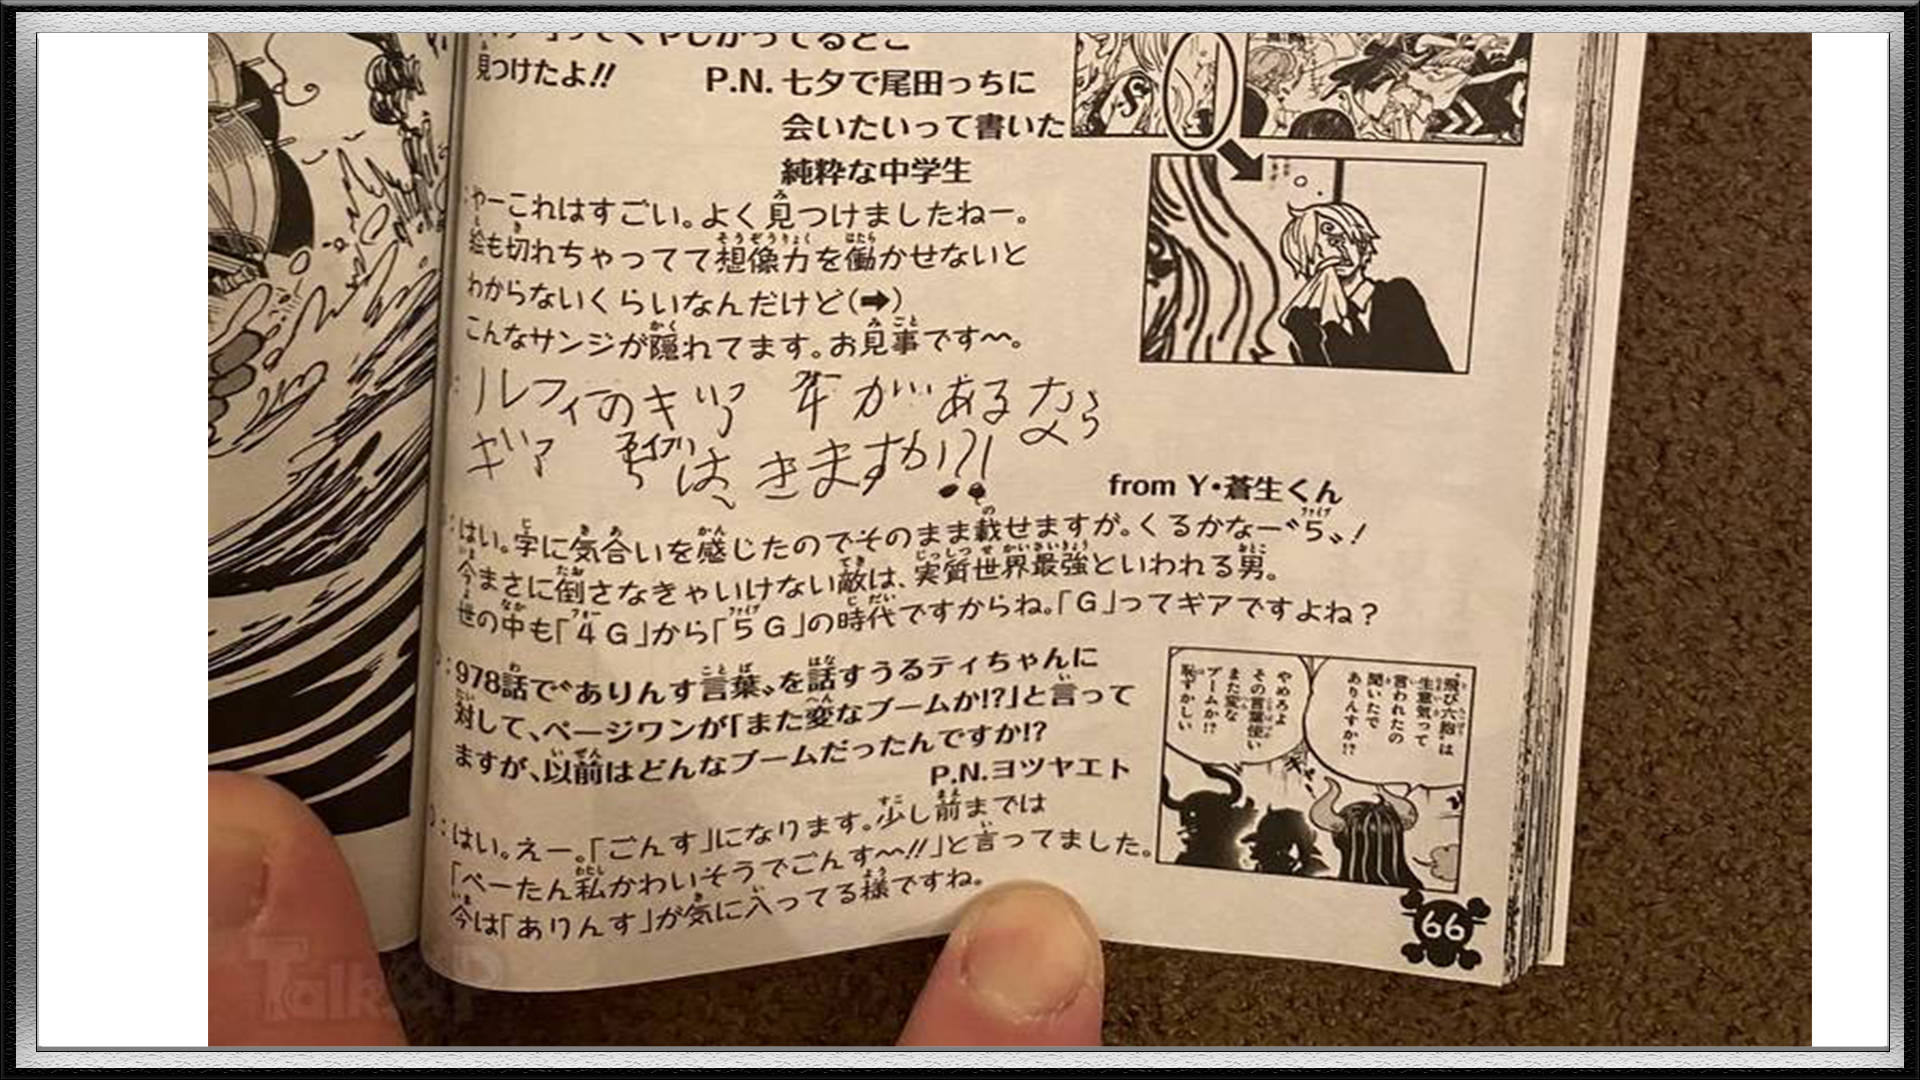 見つけたよ!!
P.N.七夕で尾田っちに
会いたいって書いた
純粋な中学生
やーこれはすごい。よく見つけましたねー。
絵も切れちゃってて想像力を働かせないと
わからないくらいなんだけど(➡)
こんなサンジが隠れてます。お見事です〜。
ルフィのギツア 4があるなら
ギア 5は、きますか!?!
from Y・蒼生くん
はい。字に気合いを感じたのでそのまま載せますが。くるかなー〝5〟!
今まさに倒さなきゃいけない敵は、実質世界最強といわれる男。
世の中も「4G」から「5G」の時代ですからね。「G」ってギアですよね?
:978話で〝ありんす言葉〟を話すうるティちゃんに
対して、ページワンが「また変なブームか!?」と言って
ますが、以前はどんなブームだったんですか!?
P.N.ヨツヤエト
:はい。えー。「ごんす」になります。少し前までは
「ペーたん私かわいそうでごんす〜!!」と言ってました。
今は「ありんす」が気に入ってる様ですね。
〝飛び六胞〟は
生意気って
言われたの
聞いたで
ありんすか!?
やめろよ
その言葉使い
また変な
ブームか!?
恥ずかしい
66
TalkOP